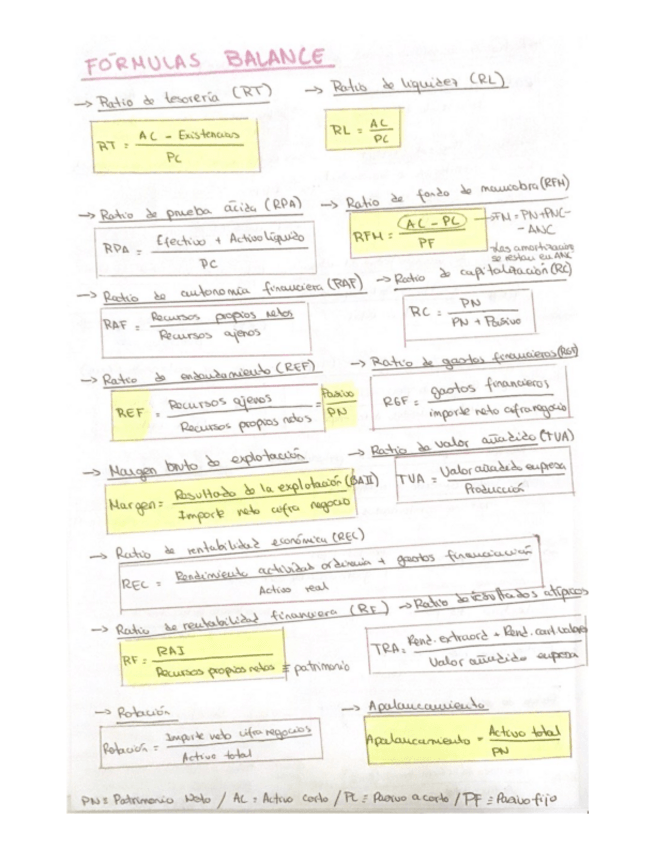 FÓRMULAS BALANCE
→ Ratio de tesorería (RT)
RT = AC - Existencias / PC
→ Ratio de liquidez (RL)
RL = AC / PC
→ Ratio de prueba ácida (RPA)
RPA = Efectivo + Activo líquido / PC
→ Ratio de fondo de maniobra (RFM)
RFM = AC - PC / PF
→ FM = PN + PNC -
- ANC
→ las amortizaciones
se restan en ANC
→ Ratio de autonomía financiera (RAF)
RAF = Recursos propios netos / Recursos ajenos
→ Ratio de capitalización (RC)
RC = PN / PN + Pasivo
→ Ratio de endeudamiento (REF)
REF = Recursos ajenos / Recursos propios netos = Pasivo / PN
→ Ratio de gastos financieros (RGF)
RGF = gastos financieros / importe neto cifra negocio
→ Margen bruto de explotación
Margen = Resultado de la explotación (BAII) / Importe neto cifra negocio
→ Ratio de valor añadido (TVA)
TVA = Valor añadido empresa / Producción
→ Ratio de rentabilidad económica (REC)
REC = Rendimiento actividad ordinaria + gastos financiación / Activo real
→ Ratio de rentabilidad financiera (RF)
RF = RAI / Recursos propios netos ≡ patrimonio
→ Ratio de resultados atípicos
TRA = Rend. extraord + Rend. cart valores / Valor añadido empresa
→ Rotación
Rotación = Importe neto cifra negocios / Activo total
→ Apalancamiento
Apalancamiento = Activo total / PN
PN ≡ Patrimonio Neto / AC ≡ Activo corto / PC ≡ Pasivo a corto / PF ≡ Pasivo fijo